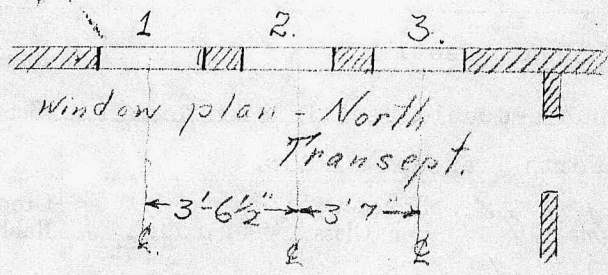 1 2. 3.
Window plan - North
Transept.
3'-6½" 3'7"
℄. ℄ ℄